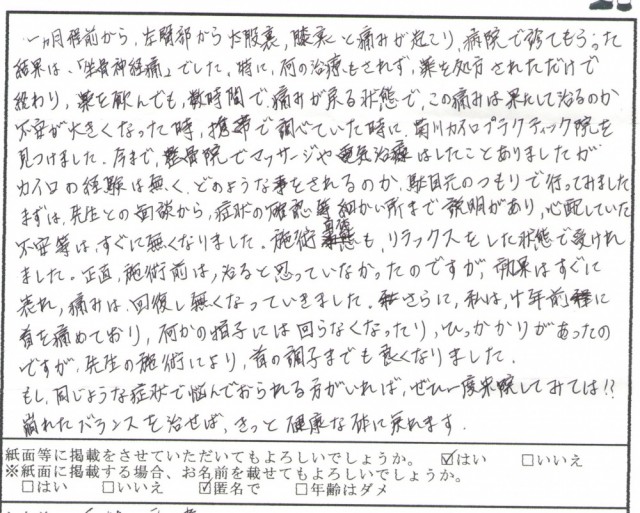 一ヵ月程前から、左臀部から大腿裏、膝裏と痛みが起こり、病院で診てもらった
結果は、「坐骨神経痛」でした。特に、何の治療もされず、薬を処方されただけで
終わり、薬を飲んでも、数時間で痛みが戻る状態で、この痛みは果たして治るのか
不安が大きくなった時、携帯で調べていた時に、菊川カイロプラクティック院を
見つけました。今まで、整骨院でマッサージや電気治療はしたことありましたが
カイロの経験は無く、どのような事をされるのか、駄目元のつもりで行ってみました
まずは、先生との面談から、症状の確認等細かい所まで説明があり、心配していた
不安等は、すぐに無くなりました。施術自体も、リラックスをした状態で受けれ
ました。正直、施術前は、治ると思っていなかったのですが、効果はすぐに
表れ、痛みは、回復し無くなっていきました。さらに、私は、十年前に
首を痛めており、何かの拍子には回らなくなったり、ひっかかりがあったの
ですが、先生の施術により、首の調子までも良くなりました。
もし、同じような症状で悩んでおられる方がいれば、ぜひ一度来院してみては!?
崩れたバランスを治せば、きっと健康な体に戻れます。
紙面等に掲載をさせていただいてもよろしいでしょうか。 ☑はい □いいえ
※紙面に掲載する場合、お名前を載せてもよろしいでしょうか。
□はい □いいえ ☑匿名で □年齢はダメ